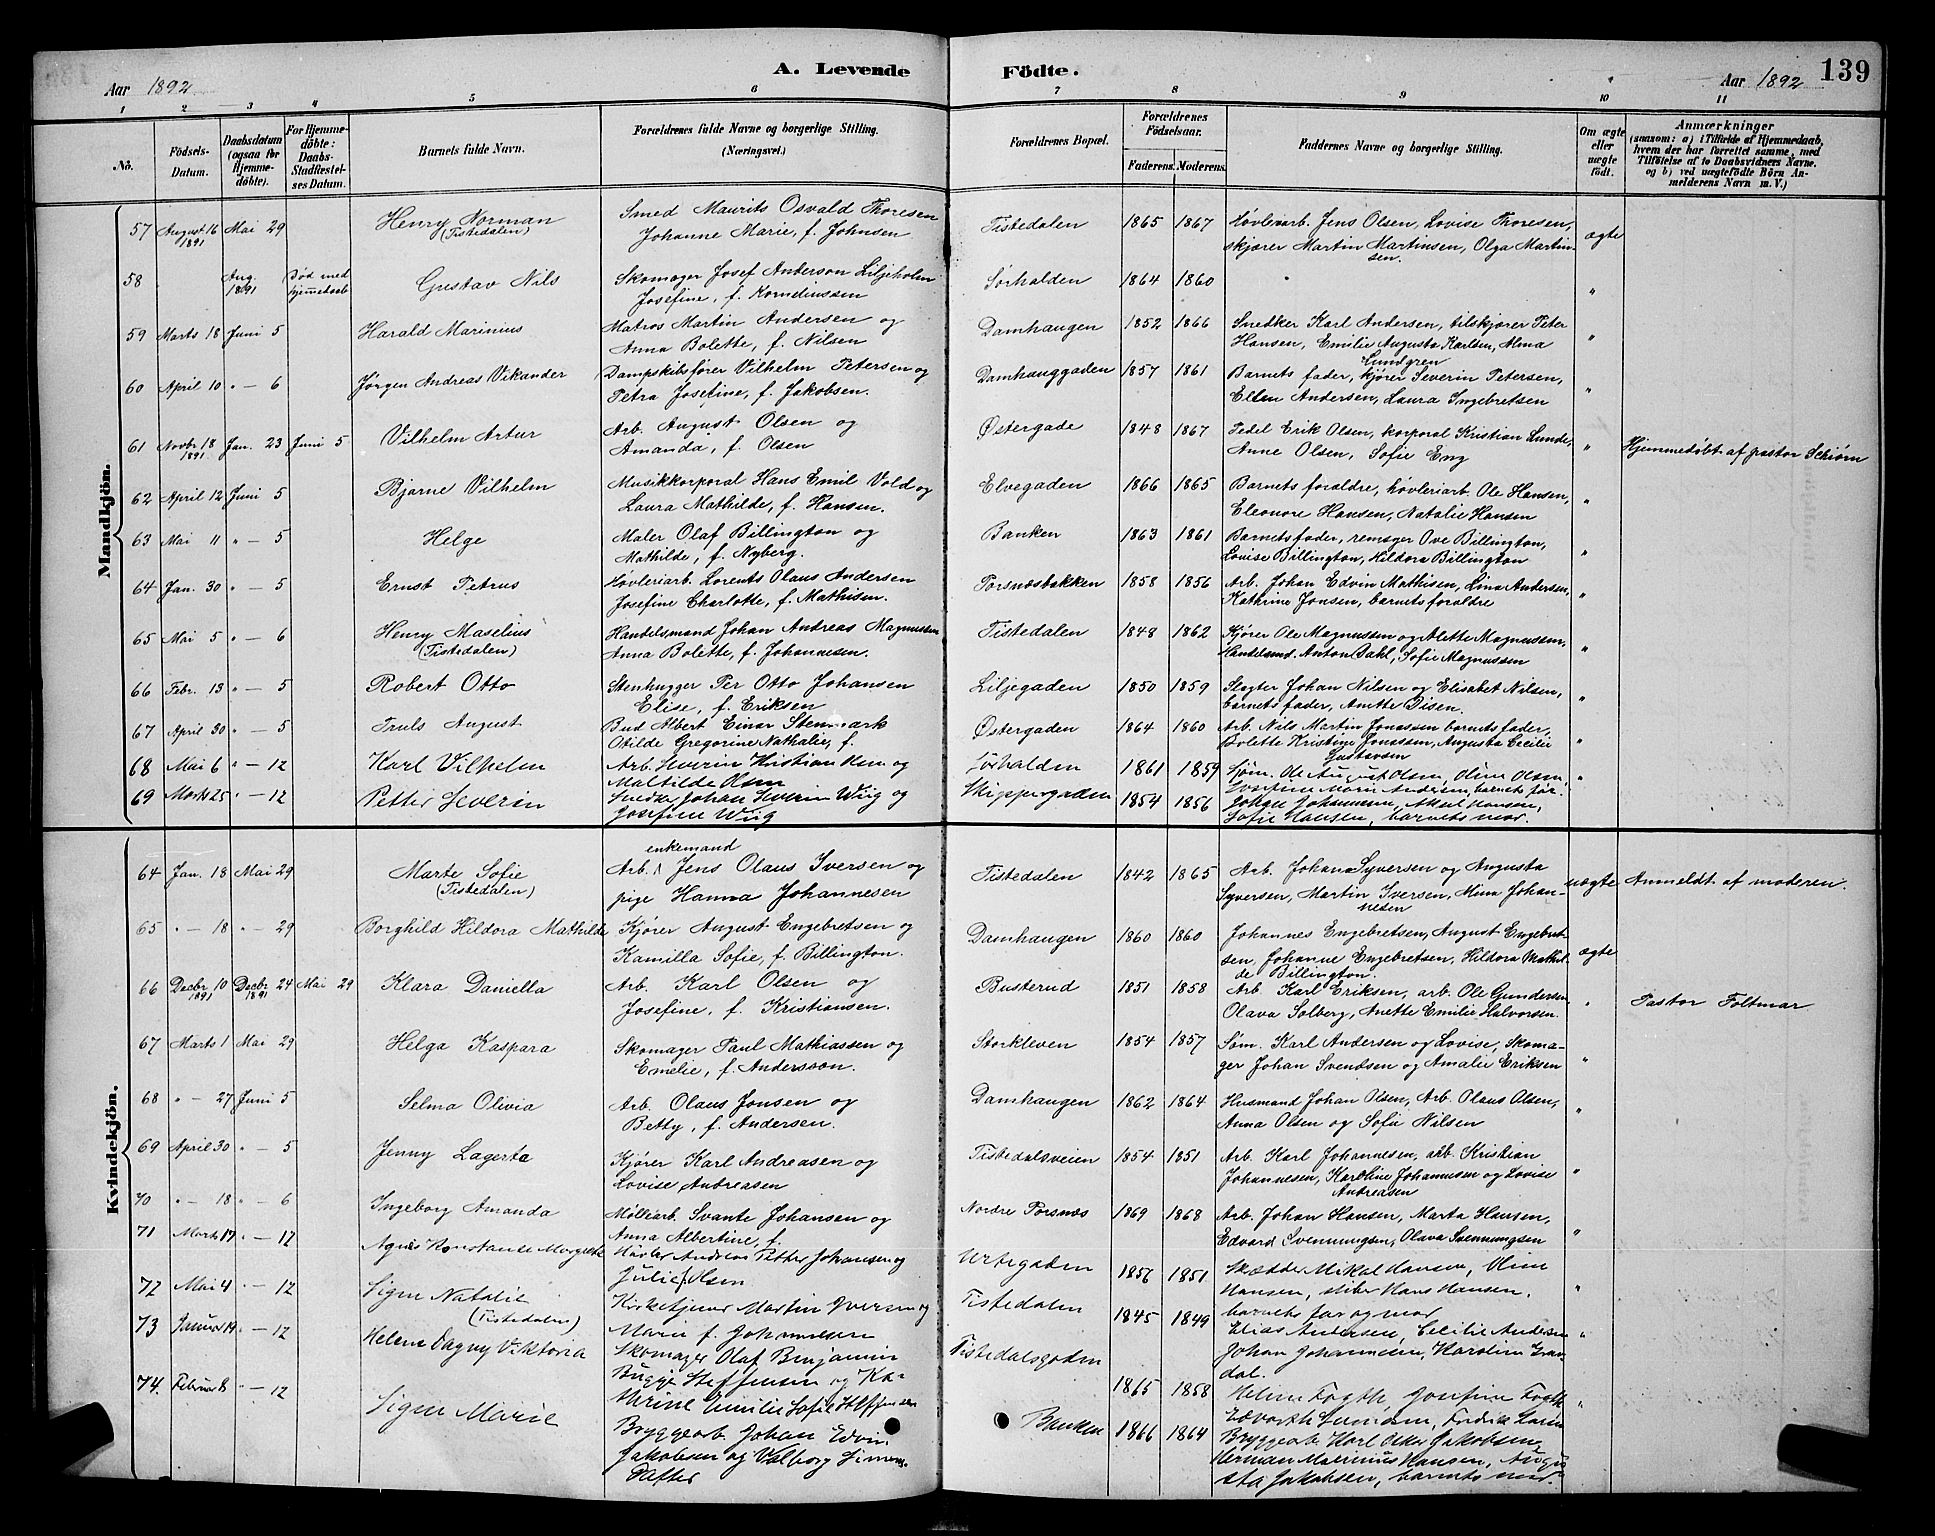 A. Levende Fødte.
139
Aar 1892
Aar 1892
1 2 3 4 5 6 7 8 9 10 11
No.
Fødsels-Datum.
Daabsdatum (ogsaa for Hjemme-døbte).
For Hjemme-døbte: Daabs-Stadfæstel-ses Datum.
Barnets fulde Navn.
Forældrenes fulde Navne og borgerlige Stilling. (Næringsvei.)
Forældrenes Bopæl.
Forældrenes Fødselsaar.
Faderens. Moderens.
Faddernes Navne og borgerlige Stilling.
Om ægte eller uægte født.
Anmærkninger
(saasom: a) i Tilfælde af Hjemmedaab, hvem der har forrettet samme, med Tilføielse af to Daabsvidners Navne, og b) ved uægtefødte Børn Anmelderens Navn m. V.)
Mandkjön.
57 August 16 1891 Mai 29 Henry Norman (Tistedalen) Smed Maurits Osvald Thoresen Tistedalen 1865 1867 Høvleriarb. Jens Olsen, Lovise Thoresen, ægte
Johanne Marie, f. Johnsen skjærer Martin Martinsen, Olga Martinsen.
58 Aug. 1891 Død med hjemmedaab Gustav Nils Skomager Josef Anderson Liljeholm Sørhalden 1864 1860 "
Josefine, f. Korneliussen
59 Marts 18 Juni 5 Harald Marinius Matros Martin Andersen og Damhaugen 1852 1866 Snedker Karl Andersen, tilskjærer Peter "
Anna Bolette, f. Nilsen Hansen, Emilie Augusta Karlsen, Alma Lundgren
60 April 10 " — 6 Jørgen Andreas Vikander Dampskibsfører Vilhelm Petersen og Damhauggaden 1857 1861 Barnets fader, kjører Severin Petersen, "
Petra Josefine, f. Jakobsen. Ellen Andersen, Laura Ingebretsen
61 Novbr 18 1891. Jan. 23 Juni 5 Vilhelm Artur Arb. August Olsen og Østergade 1848 1867 Pedel Erik Olsen, korporal Kristian Lunde, " Hjemmedøbt af pastor Schiørn
Amanda, f. Olsen Anne Olsen, Sofie Eng
62 April 12 Juni 5 Bjarne Vilhelm Musikkorporal Hans Emil Vold og Elvegaden 1866 1865 Barnets foraldre, høvleriarb. Ole Hansen, "
Laura Mathilde, f. Hansen. Eleonore Hansen, Natalie Hansen
63 Mai 11 " — 5 Helge Maler Olaf Billington og Banken 1863 1861 Barnets fader, remsger Ove Billington, "
Mathilde, f. Nyberg. Louise Billington, Hildora Billington
64 Jan. 30 " — 5 Ernst Petrus Høvleriarb. Lorents Olaus Andersen Porsnæsbakken 1858 1856 Arb. Johan Edvin Mathisen, Lina Andersen, "
Josefine Charlotte, f. Mathisen. Kathrine Jonsen, barnets foraldre
65 Mai 5 " — 6 Henry Maselius (Tistedalen) Handelsmand Johan Andreas Magnussen Tistedalen 1848 1862 Kjører Ole Magnussen og Alette Magnussen, "
Anna Bolette, f. Johannesen. Handelsmd. Anton Dahl, Sofie Magnussen
66 Febr. 13 " — 5 Robert Otto Stenhugger Per Otto Johansen Liljegaden 1850 1859 Slagter Johan Nilsen og Elisabet Nilsen, "
Elise, f. Eriksen barnets fader, Anette Disen.
67 April 30 " — 5 Truls August Bud Albert Einar Stenmark Østergaden 1864 1860 Arb. Nils Martin Jonassen barnets fader, "
Otilde Gregorine Nathalie, f. Bolette Kristine Jonassen, Augusta Cecilie Gustavsen
68 Mai 6 " — 12 Karl Vilhelm Arb. Severin Kristiansen og Sørhalden 1861 1859 Sjøm. Ole August Olsen, Oline Olsen, "
Mathilde Olsen Josefine Marie Andersen, barnets far.
69 Marts 25 " — 12 Petter Severin Snedker Johan Severin Wiig og Skippergaden 1854 1856 Johan Johannesen, Aksel Hansen,
Josefine Wiig Sofie Hansen, barnets mor.
Kvindekjön.
64 Jan. 18 Mai 29 Marte Sofie (Tistedalen) Arb. enkemand Jens Olaus Iversen og Tistedalen 1842 1865 Arb. Johan Syversen og Augusta uægte Anmeldt af moderen.
pige Hanna Johannesen Syversen, Martin Iversen, Mina Johannesen
65 " — 18 " — 29 Borghild Hildora Mathilde Kjører August Engebretsen og Damhaugen 1860 1860 Johannes Engebretsen, August Engebret- ægte
Kamilla Sofie, f. Billington. sen, Johanne Engebretsen, Hildora Mathilde Billington.
66 Decbr 10 1891 Decbr 24 1891 Mai 29 Klara Daniella Arb. Karl Olsen og Busterud 1851 1858 Arb. Karl Eriksen, arb. Ole Gundersen " Pastor Foltmar
Josefine, f. Kristiansen. Olava Solberg, Anette Emilie Halvorsen.
67 Marts 1 Mai 29 Helga Kaspara Skomager Paul Mathiassen og Storkleven 1854 1857 Søm. Karl Andersen og Lovise, Skoma- "
Emelie, f. Andersson. ger Johan Svendsen og Amalie Eriksen
68 " — 27 Juni 5 Selma Olivia Arb. Olaus Jonsen og Damhaugen 1862 1864 Husmand Johan Olsen, Arb. Olaus Olsen, "
Betty, f. Andersen. Anna Olsen og Sofie Nilsen
69 April 30 " — 5 Jenny Lagerta Kjører Karl Andreasen og Tistedalsveien 1854 1851 Arb. Karl Johannesen, arb. Kristian "
Lovise Andreasen Johannesen, Karoline Johannesen og Lovise Andreasen
70 " — 18 " — 6 Ingeborg Amanda Møllearb. Svante Johansen og Nordre Porsnæs 1869 1868 Arb. Johan Hansen, Marta Hansen, "
Anna Albertine, f. Edvard Svenningsen, Olava Svenningsen
71 Marts 17 " — 12 Agnes Konstanse Margrethe Høvler Andreas Petter Johansen og Urtegaden 1856 1851 Skrædder Mikal Hansen, Oline "
Julie Olsen Hansen, stiber Hans Hansen, barnets far og mor
72 Mai 4 " — 12 Signe Natalie (Tistedalen) Kirketjener Martin Iversen og Tistedalen 1845 1849 Elias Andersen, Cecilie Andersen "
Marie f. Johannesen Johan Johannesen, Karoline Grandal.
73 Januar 19 " — 12 Helene Dagny Viktoria Skomager Olaf Benjamin Tistedalsgaden 1865 1858 Helene Fogth, Josefine Fogth "
Bugge Steffensen og Ka-
thrine Emilie Sofie Steffensen
74 Februar 8 " — 12 Signe Marie Bryggearb. Johan Edvin Banken 1866 1864 Bryggearb. Karl Oskar Jakobsen,
Jakobsen og Valborg Simens- Herman Marinius Hansen, Augu
datter sta Jakobsen, barnets mor.